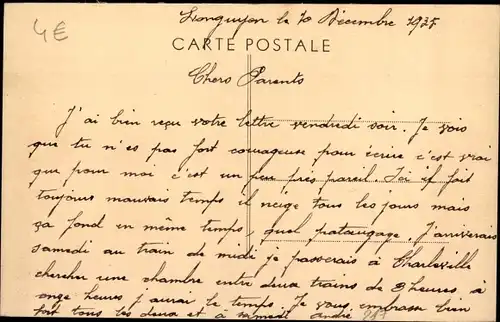 Longuyon le 10 Décembre 1937
4€
CARTE POSTALE
Chers Parents
J'ai bien reçu votre lettre vendredi soir. Je vois
que tu n'es pas fort courageuse pour écrire c'est vrai
que pour moi c'est un peu près pareil. Ici il fait
toujours mauvais temps il neige tous les jours mais
ça fond en même temps, quel pataugage. J'arriverais
samedi au train de midi je passerais à Charleville
chercher une chambre entre deux trains de 9 heures à
onze heures j'aurai le temps. Je vous embrasse bien
fort tous les deux et à samedi André